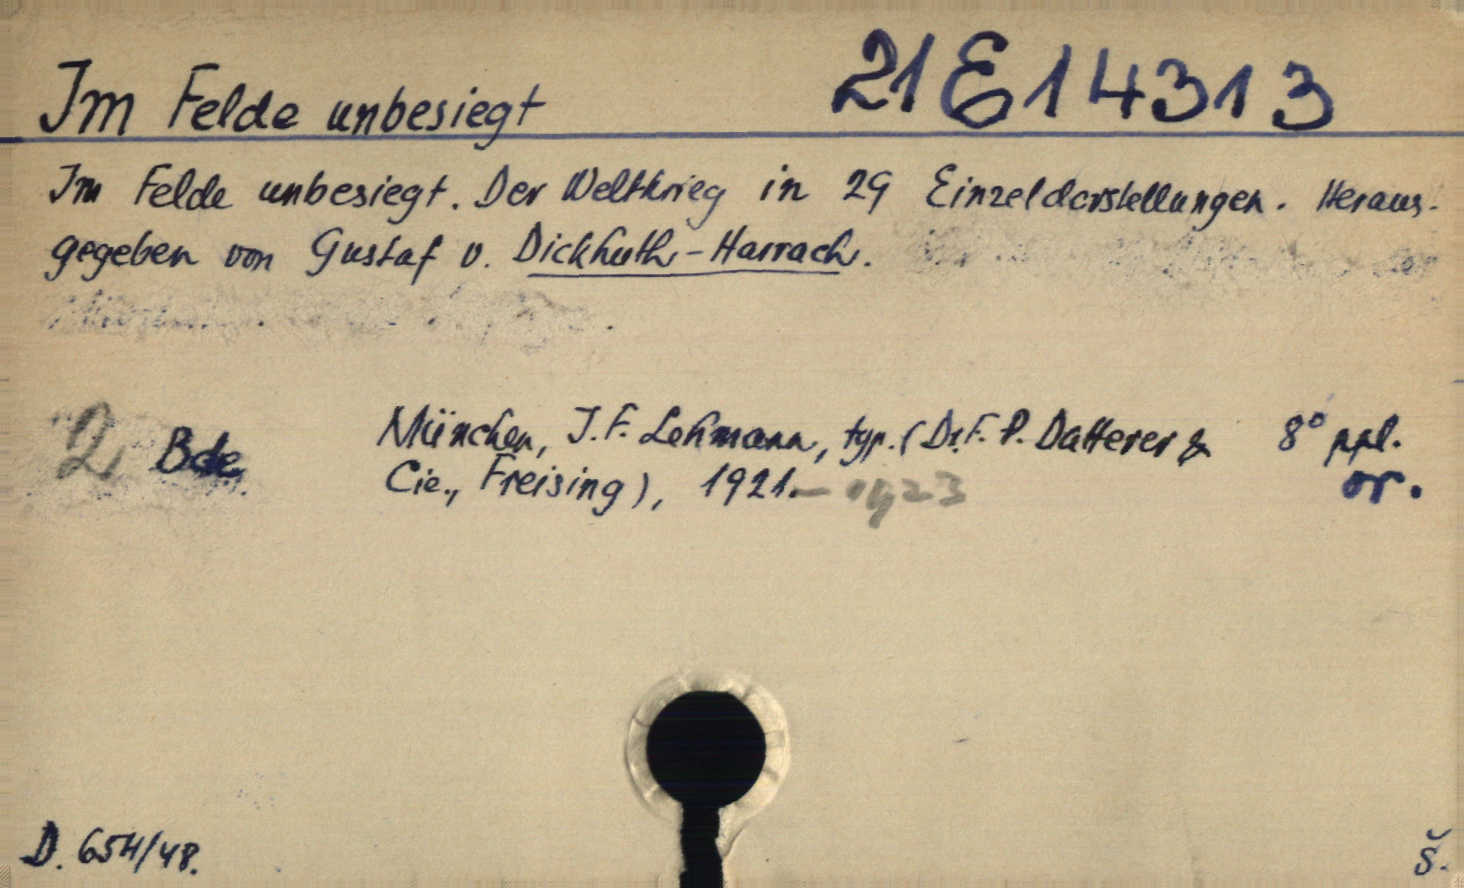 Im Felde unbesiegt 21 E 14313
Im Felde unbesiegt. Der Weltkrieg in 29 Einzeldarstellungen. Heraus-
gegeben von Gustaf v. Dickhuth-Harrach.
2 Bde München, J.F. Lehmann, typ. (Dr. F. P. Datterer & 8° ppl.
Cie., Freising), 1921.- 1923 or.
D. 654/48. Š.